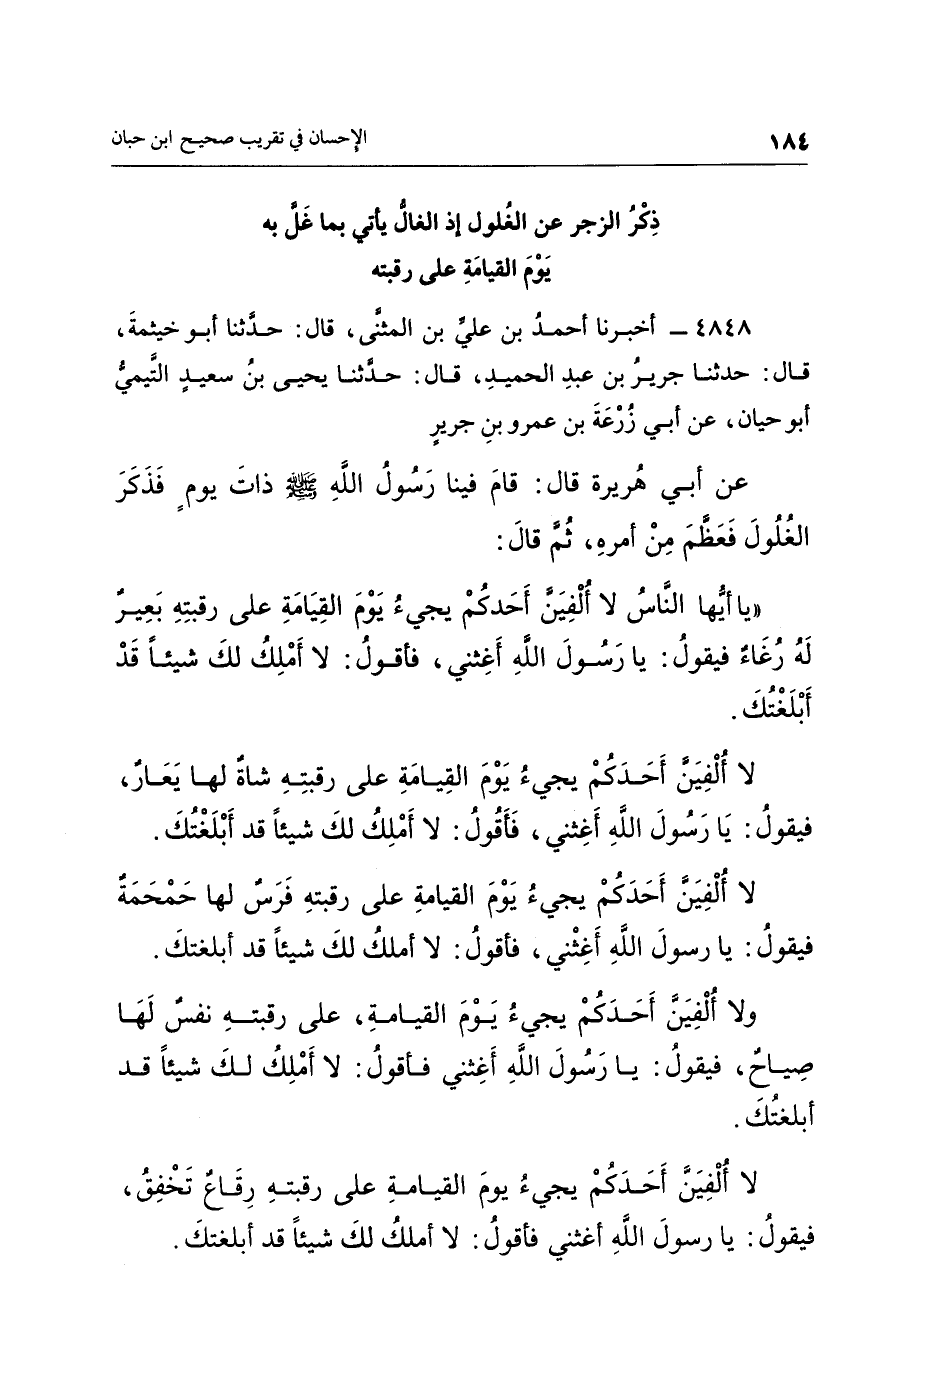 ١٨٤ الإحسان في تقريب صحيح ابن حبان
ذِكْرُ الزجر عن الغُلول إذ الغالُّ يأتي بما غَلَّ به
يَوْمَ القيامَةِ على رقبته
٤٨٤٨ ــ أخبرنا أحمدُ بن عليِّ بن المثنَّى، قال: حدَّثنا أبو خيثمةَ،
قال: حدثنا جريرُ بن عبدِ الحميدِ، قال: حدَّثنا يحيى بنُ سعيدٍ التَّيميُّ
أبو حيان، عن أبي زُرْعَةَ بن عمرو بنِ جريرٍ
عن أبي هُريرة قال: قامَ فينا رَسُولُ اللَّهِ ﷺ ذاتَ يومٍ فَذَكَرَ
الغُلُولَ فَعَظَّمَ مِنْ أمرهِ، ثُمَّ قالَ:
«يا أيُّها النَّاسُ لا أُلْفِيَنَّ أَحَدكُمْ يجيءُ يَوْمَ القِيَامَةِ على رقبتِهِ بَعِيرٌ
لَهُ رُغَاءٌ فيقولُ: يا رَسُولَ اللَّهِ أَغِثني، فأقولُ: لا أَمْلِكُ لكَ شيئاً قَدْ
أَبْلَغْتُكَ.
لا أُلْفِيَنَّ أَحَدَكُمْ يجيءُ يَوْمَ القِيامَةِ على رقبتِهِ شاةٌ لها يَعَارٌ،
فيقولُ: يَا رَسُولَ اللَّهِ أَغِثني، فَأَقُولُ: لا أَمْلِكُ لكَ شيئاً قد أَبْلَغْتُكَ.
لا أُلْفِيَنَّ أَحَدَكُمْ يجيءُ يَوْمَ القيامةِ على رقبتهِ فَرَسٌ لها حَمْحَمَةٌ
فيقولُ: يا رسولَ اللَّهِ أَغِثْني، فأقولُ: لا أملكُ لكَ شيئاً قد أبلغتكَ.
ولا أُلْفِيَنَّ أَحَدَكُمْ يجيءُ يَوْمَ القيامةِ، على رقبتهِ نفسٌ لَهَا
صِياحٌ، فيقولُ: يا رَسُولَ اللَّهِ أَغِثني فأقولُ: لا أَمْلِكُ لكَ شيئاً قد
أبلغتُكَ.
لا أُلْفِيَنَّ أَحَدَكُمْ يجيءُ يومَ القيامةِ على رقبتهِ رِقَاعٌ تَخْفِقُ،
فيقولُ: يا رسولَ اللَّهِ أغثني فأقولُ: لا أملكُ لكَ شيئاً قد أبلغتكَ.